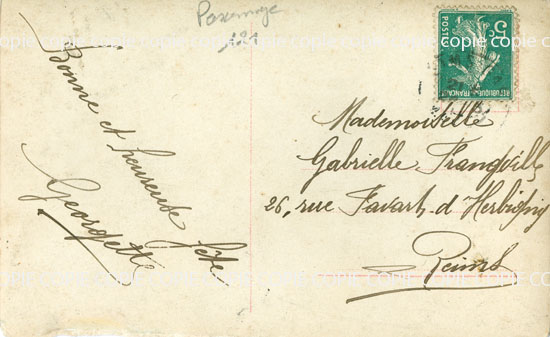 COPIE COPIE COPIE COPIE COPIE COPIE COPIE COPIE COPIE COPIE
Bonne et heureuse fête
Georgette
5c
POSTES
REPUBLIQUE FRANÇAISE
Mademoiselle
Gabrielle
26, rue Favart d'Herbigny
Reims
COPIE COPIE COPIE COPIE COPIE COPIE COPIE COPIE COPIE COPIE